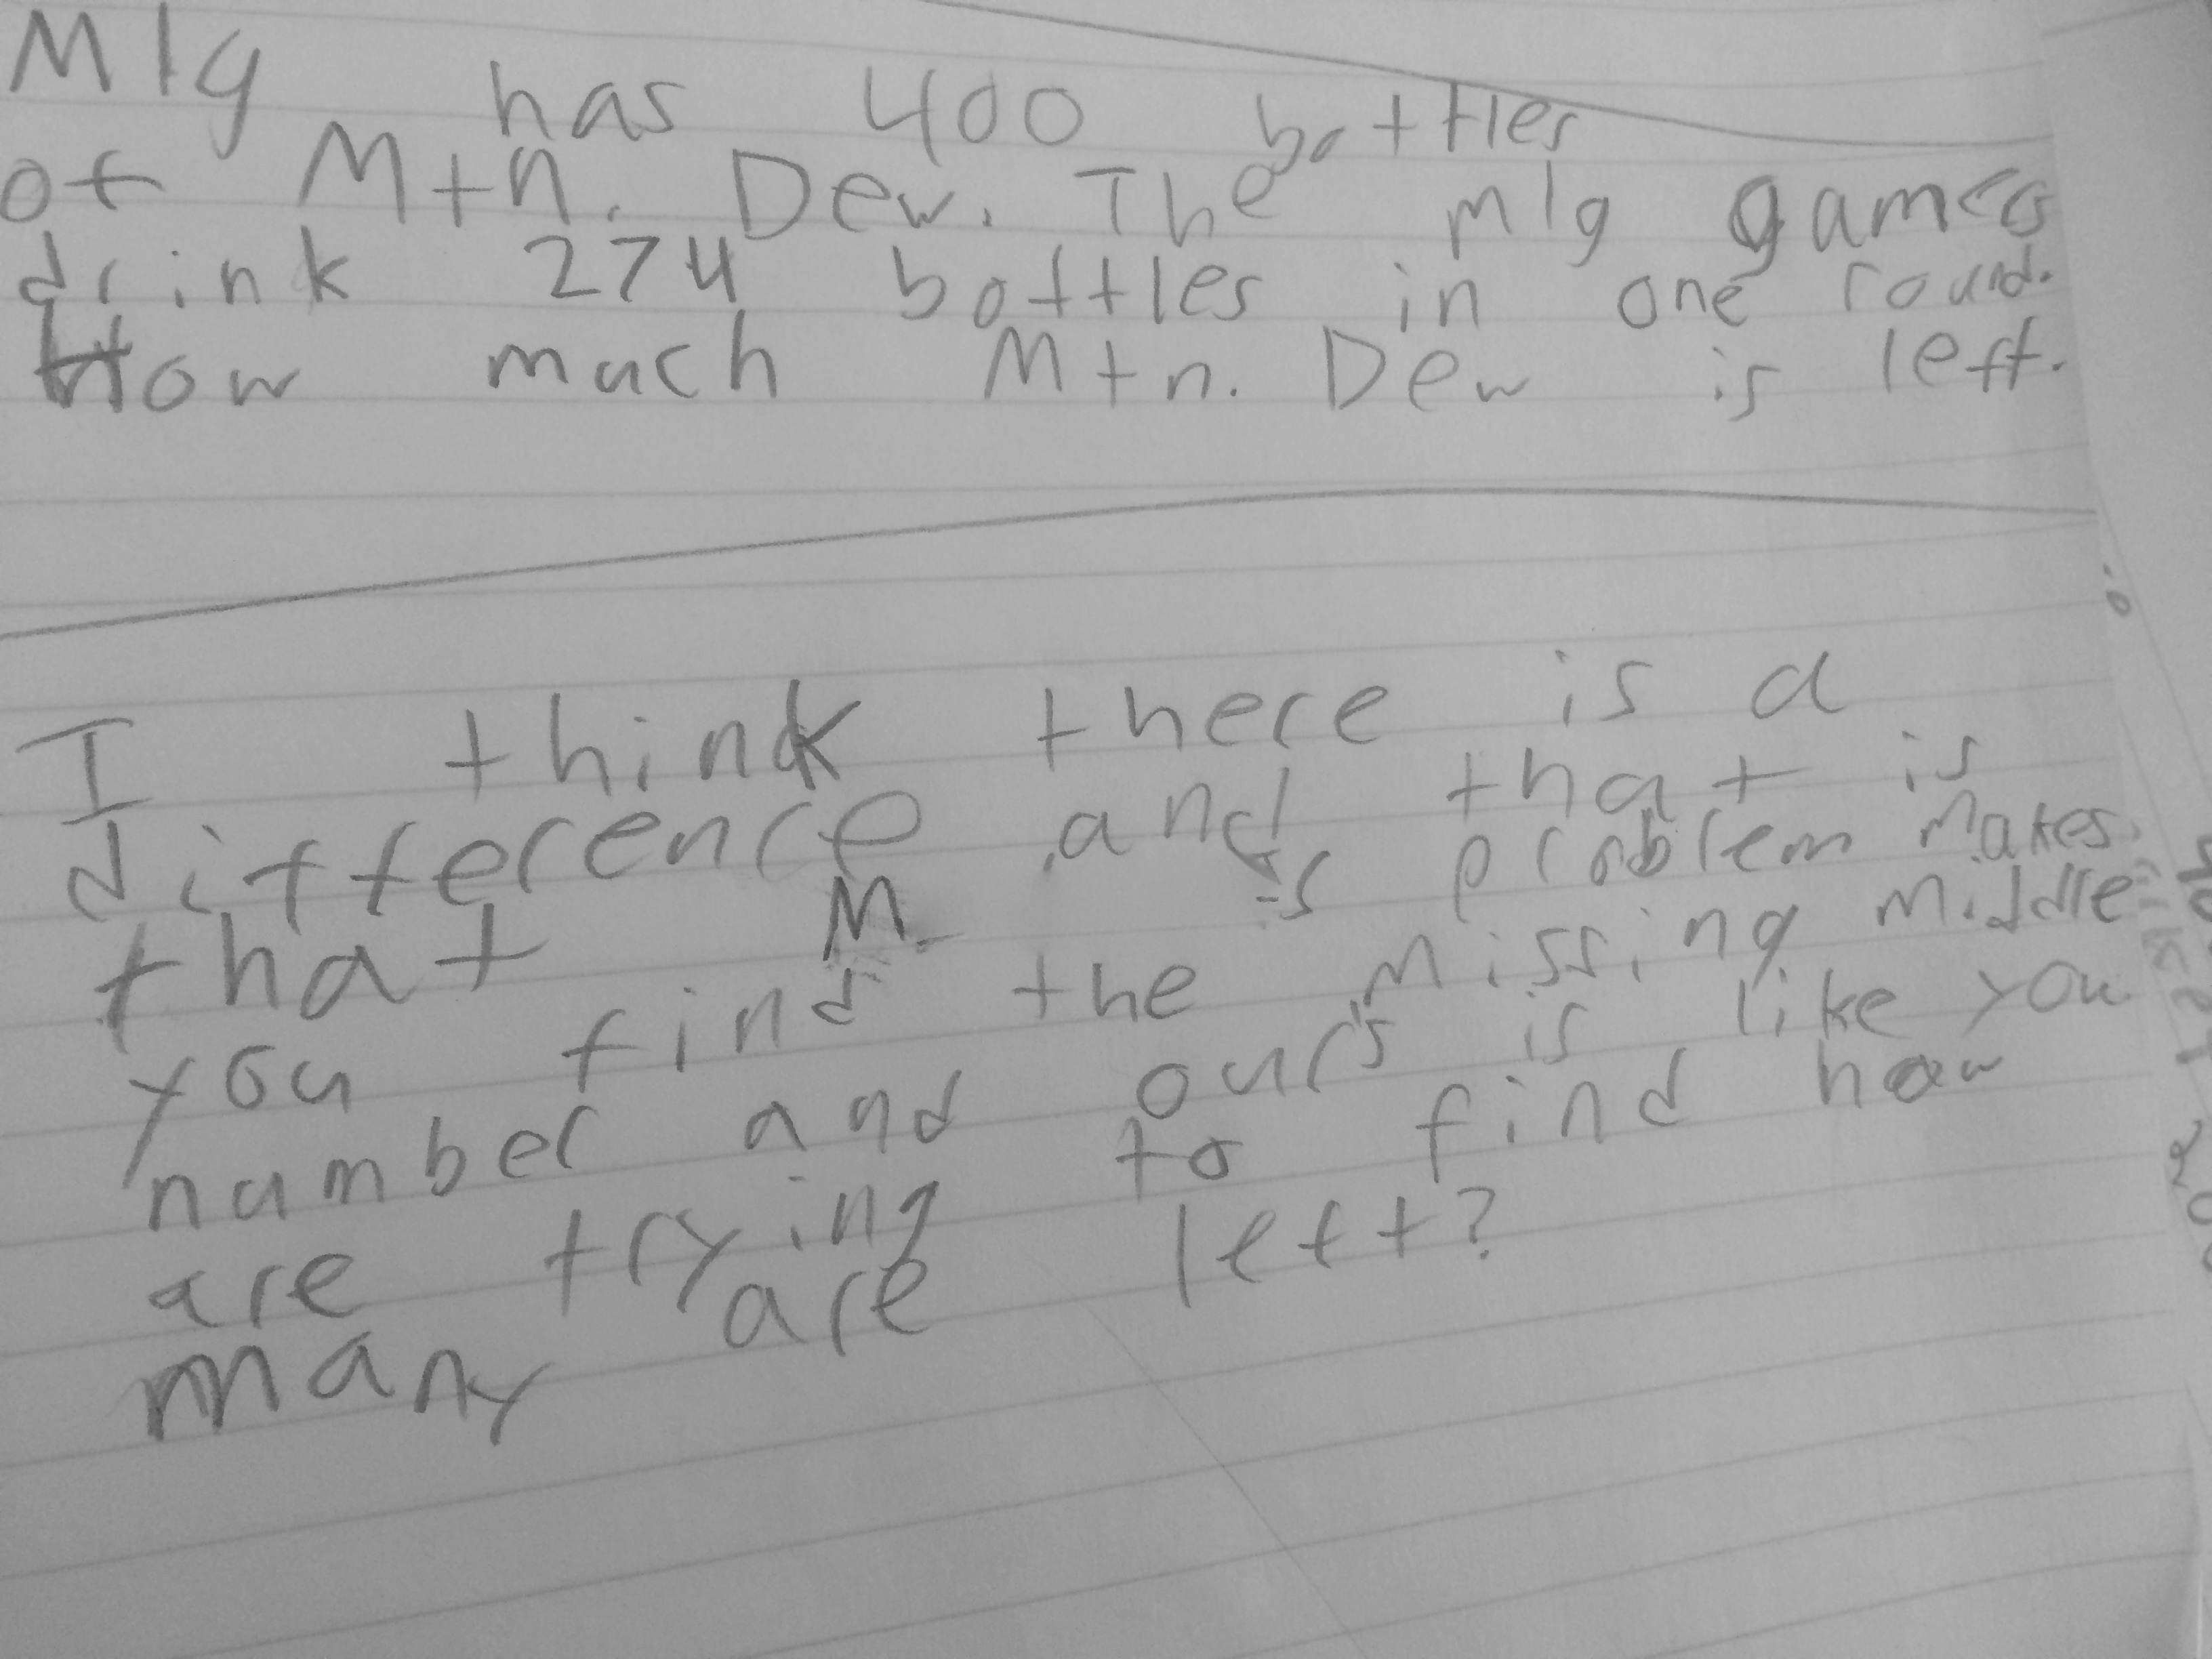 Mlg has 400 bottles
of Mtn. Dew. The mlg gamers
drink 274 bottles in one round.
How much Mtn. Dew is left.
I think there is a
difference and that is
that M.      's problem makes
you find the missing middle
number and ours is like you
are trying to find how
many are left?